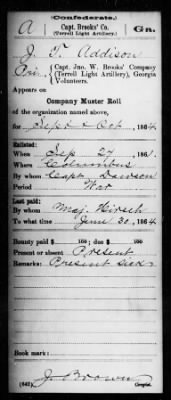 (Confederate.)
A | Capt. Brooks' Co. (Terrell Light Artillery.) | Ga.
J. T. Addison
Pvt., Capt. Jno. W. Brooks' Company
(Terrell Light Artillery), Georgia
Volunteers.
Appears on
Company Muster Roll
of the organization named above,
for Sept & Oct, 1864
Enlisted:
When Sep 27, 1861.
Where Columbus
By whom Capt. Dawson
Period War
Last paid:
By whom Maj. Hirsch
To what time June 30, 1864
Bounty paid $ 100; due $ 100
Present or absent Present
Remarks: Present sick
Book mark:
(642) J. Brown
Copyist.